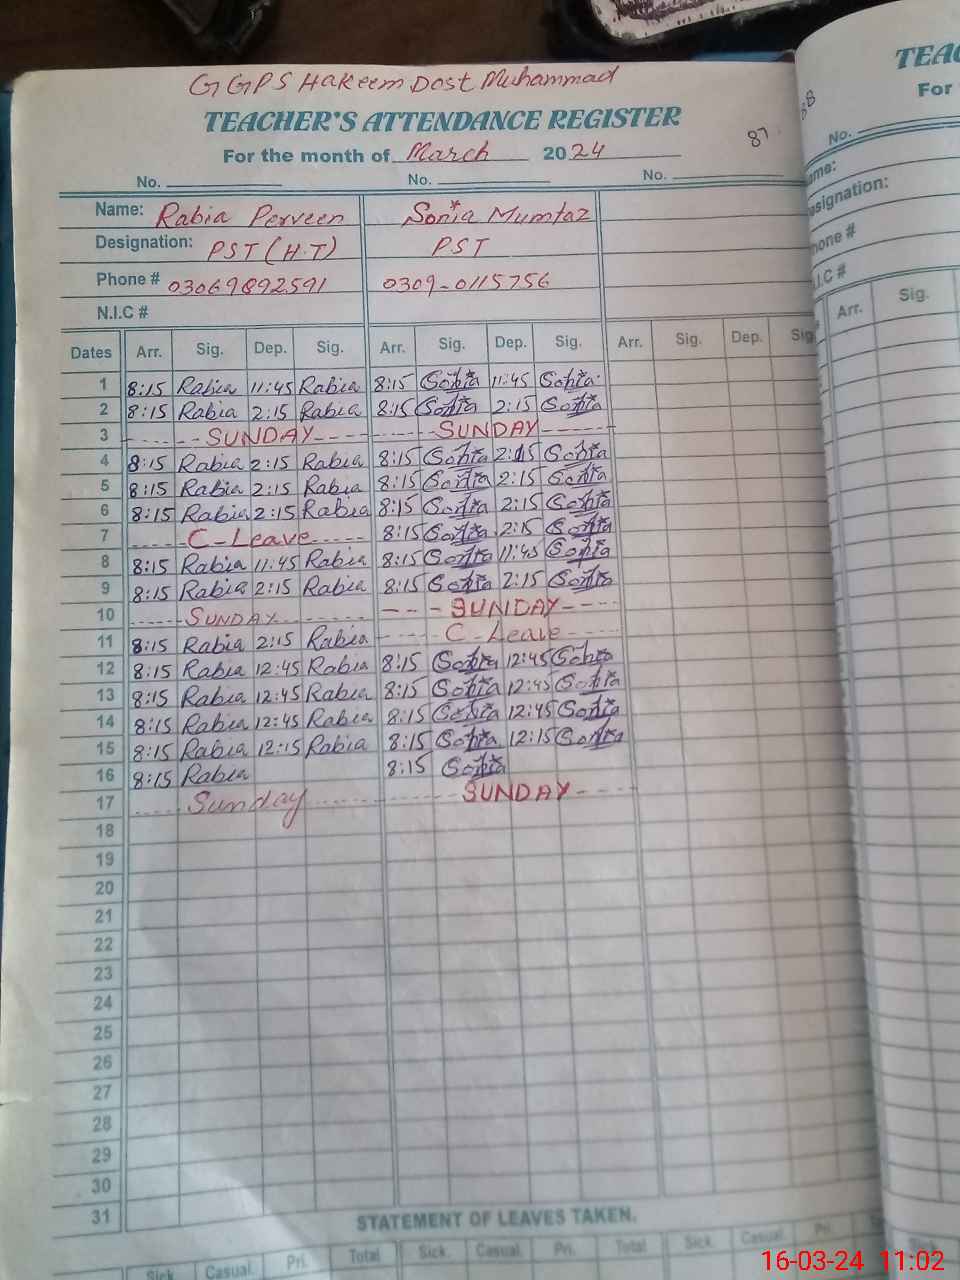 G G P S Hakeem Dost Muhammad
TEACHER'S ATTENDANCE REGISTER
87
For the month of March 2024
No. No. No.
Name: Rabia Perveen Sonia Mumtaz
Designation: PST (H.T) PST
Phone # 03069892591 0309-0115756
N.I.C #
Dates Arr. Sig. Dep. Sig. Arr. Sig. Dep. Sig. Arr. Sig. Dep. Sig
1 8:15 Rabia 11:45 Rabia 8:15 Sonia 11:45 Sonia
2 8:15 Rabia 2:15 Rabia 8:15 Sonia 2:15 Sonia
3 SUNDAY SUNDAY
4 8:15 Rabia 2:15 Rabia 8:15 Sonia 2:15 Sonia
5 8:15 Rabia 2:15 Rabia 8:15 Sonia 2:15 Sonia
6 8:15 Rabia 2:15 Rabia 8:15 Sonia 2:15 Sonia
7 C-Leave 8:15 Sonia 2:15 Sonia
8 8:15 Rabia 11:45 Rabia 8:15 Sonia 11:45 Sonia
9 8:15 Rabia 2:15 Rabia 8:15 Sonia 2:15 Sonia
10 SUNDAY SUNDAY
11 8:15 Rabia 2:15 Rabia C-Leave
12 8:15 Rabia 12:45 Rabia 8:15 Sonia 12:45 Sonia
13 8:15 Rabia 12:45 Rabia 8:15 Sonia 12:45 Sonia
14 8:15 Rabia 12:45 Rabia 8:15 Sonia 12:45 Sonia
15 8:15 Rabia 12:15 Rabia 8:15 Sonia 12:15 Sonia
16 8:15 Rabia 8:15 Sonia
17 Sunday SUNDAY
18
19
20
21
22
23
24
25
26
27
28
29
30
31
STATEMENT OF LEAVES TAKEN.
Sick Casual. Pri. Total Sick. Casual. Pri. Total Sick. Casual. Pri.
TEAC
For
88
No.
ame:
esignation:
hone #
.I.C #
Arr. Sig.
16-03-24 11:02